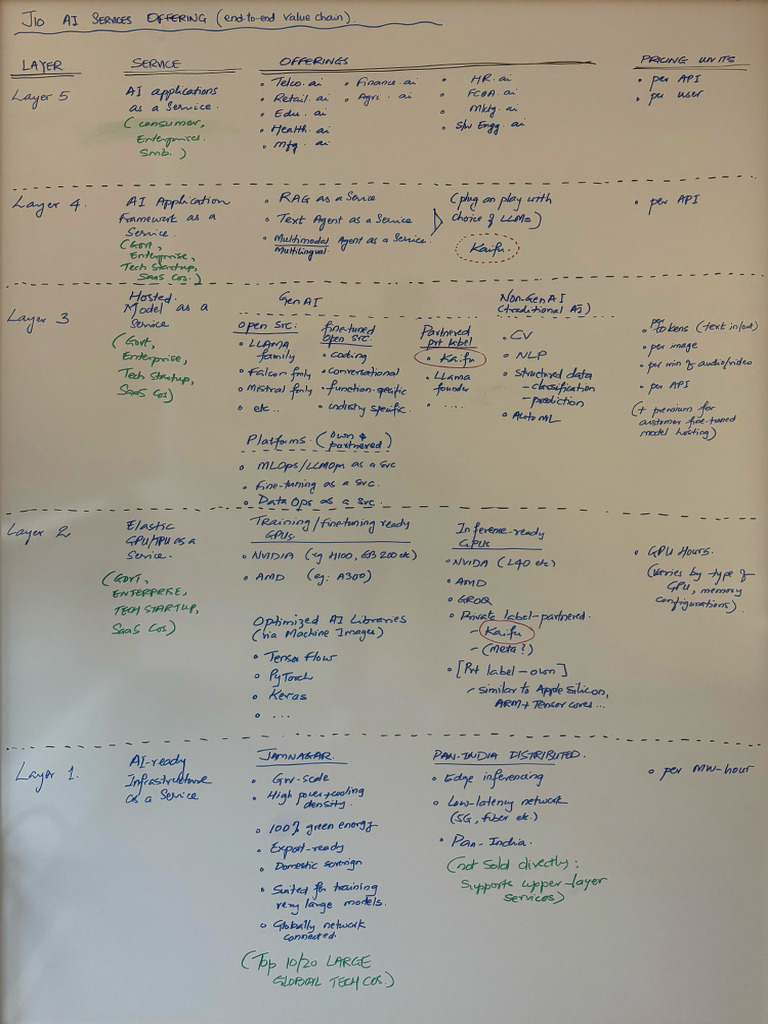 JIO AI SERVICES OFFERING (end-to-end value chain).
LAYER
SERVICE
OFFERINGS
PRICING UNITS
Layer 5
AI applications
as a Service.
(consumer,
Enterprises.
Smb.)
• Telco.ai
• Retail.ai
• Edu.ai
• Health.ai
• Mfg.ai
• Finance.ai
• Agri.ai
• HR.ai
• FC&A.ai
• Mktg.ai
• S/w Engg.ai
• per API
• per user
Layer 4.
AI Application
Framework as a
Service.
(Govt,
Enterprise,
Tech Startup,
SaaS Cos.)
• RAG as a Service
• Text Agent as a Service
• Multimodal Agent as a Service.
Multilingual
(plug an play with
choice of LLMs)
Kaifu
• per API
Layer 3
Hosted
Model as a
Service
(Govt,
Enterprise,
Tech Startup,
SaaS Cos)
GenAI
Open Src:
• LLAMA
family
• Falcon fmly
• Mistral fmly
• etc..
fine-tuned
open src.
• coding
• conversational
• function-specific
• industry specific.
Partnered
prt label
• Kaifu
• LLama
founder
• ....
Non-GenAI
(traditional AI)
• CV
• NLP
• Structured data
- classification
- prediction
• AutoML
Platforms (own & partnered)
• MLOps/LLMOps as a src
• Fine-tuning as a src.
• Data Ops as a src.
• per tokens (text in/out)
• per image
• per min of audio/video
• per API
(+ premium for
customer fine-tuned
model hosting)
Layer 2
Elastic
GPU/TPU as a
Service.
(GOVT,
ENTERPRISE,
TECH STARTUP,
SaaS Cos)
Training/finetuning ready
GPUs.
• NVIDIA (eg H100, GB200 etc)
• AMD (eg: A300)
Optimized AI Libraries
(via Machine Images)
• Tensor Flow
• PyTorch
• Keras
• ...
Inference-ready
GPUs
• NVIDIA (L40 etc)
• AMD
• GROQ
• Private label-partnered.
- Kaifu
- (Meta?)
• [Prt label-own]
- similar to Apple Silicon,
ARM + Tensor cores...
• GPU Hours.
(Varies by type of
GPU, memory
configurations)
Layer 1.
AI-ready
Infrastructure
as a Service
JAMNAGAR.
• GW-scale
• High power+cooling
density.
• 100% green energy
• Export-ready
• Domestic sovereign
• Suited for training
very large models.
• Globally network
connected.
(Top 10/20 LARGE
GLOBAL TECH COS.)
PAN-INDIA DISTRIBUTED.
• Edge inferencing
• Low-latency network
(5G, fiber etc.)
• Pan-India.
(not sold directly:
supports upper-layer
services)
• per MW-hour